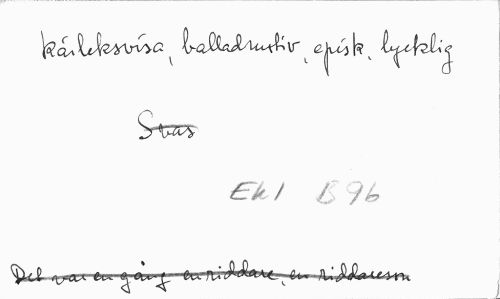 kärleksvisa, balladmotiv, episk, lycklig
Svas
Ek 1 B 96
Det var en gång en riddare, en riddareson